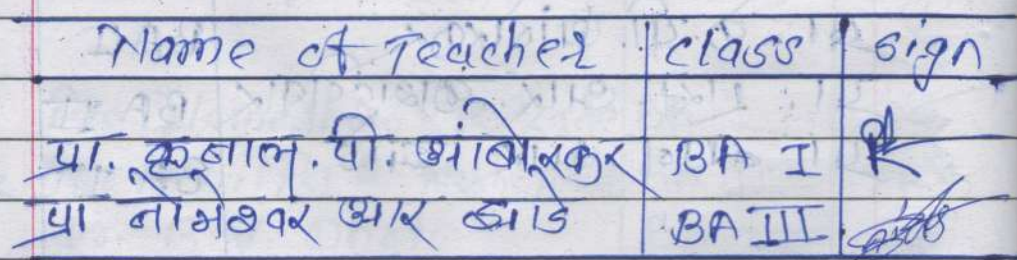 Name of Teacher class sign
प्रा. कुनाल. पी. आंबोरकर BA I
प्रा नोमेश्वर आर झाडे BA III